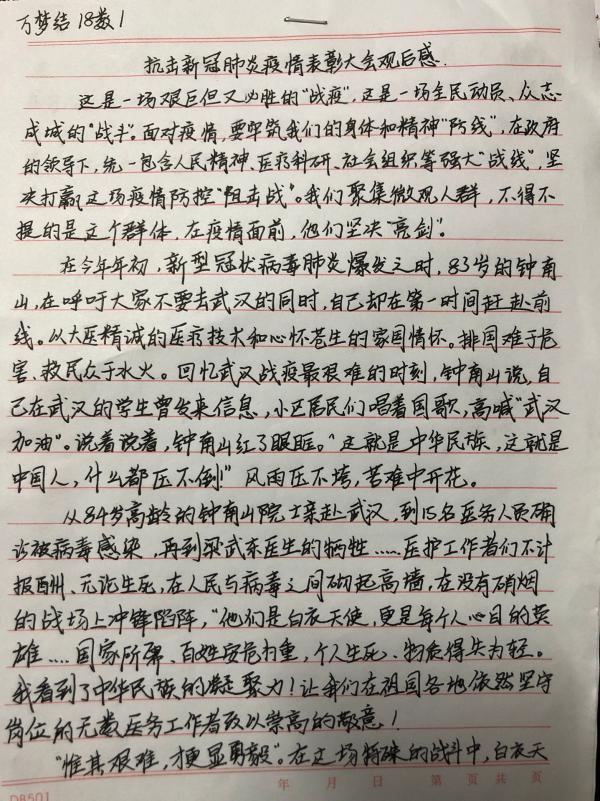 万梦结 18数1
抗击新冠肺炎疫情表彰大会观后感.
这是一场艰巨但又必胜的“战疫”,这是一场全民动员、众志
成城的“战斗”。面对疫情,要牢筑我们的身体和精神“防线”,在政府
的领导下,统一包含人民精神、医疗科研、社会组织等强大“战线”,坚
决打赢这场疫情防控“阻击战”。我们聚集微观人群,不得不
提的是这个群体,在疫情面前,他们坚决“亮剑”。
在今年年初,新型冠状病毒肺炎爆发之时,83岁的钟南
山,在呼吁大家不要去武汉的同时,自己却在第一时间赶赴前
线。以大医精诚的医疗技术和心怀苍生的家国情怀。排国难于危
害、救民众于水火。回忆武汉战疫最艰难的时刻,钟南山说,自
己在武汉的学生曾发来信息,小区居民们唱着国歌,高喊“武汉
加油”。说着说着,钟南山红了眼眶。“这就是中华民族,这就是
中国人,什么都压不倒!”风雨压不垮,苦难中开花。
从84岁高龄的钟南山院士亲赴武汉,到15名医务人员确
诊被病毒感染,再到梁武东医生的牺牲……医护工作者们不计
报酬、无论生死,在人民与病毒之间砌起高墙,在没有硝烟
的战场上冲锋陷阵,“他们是白衣天使,更是每个人心目的英
雄……国家所需、百姓安危为重,个人生死、物质得失为轻。
我看到了中华民族的凝聚力!让我们在祖国各地依然坚守
岗位的无数医务工作者致以崇高的敬意!
“惟其艰难,才更显勇毅”。在这场特殊的战斗中,白衣天
年 月 日 第 页 共 页
D8501